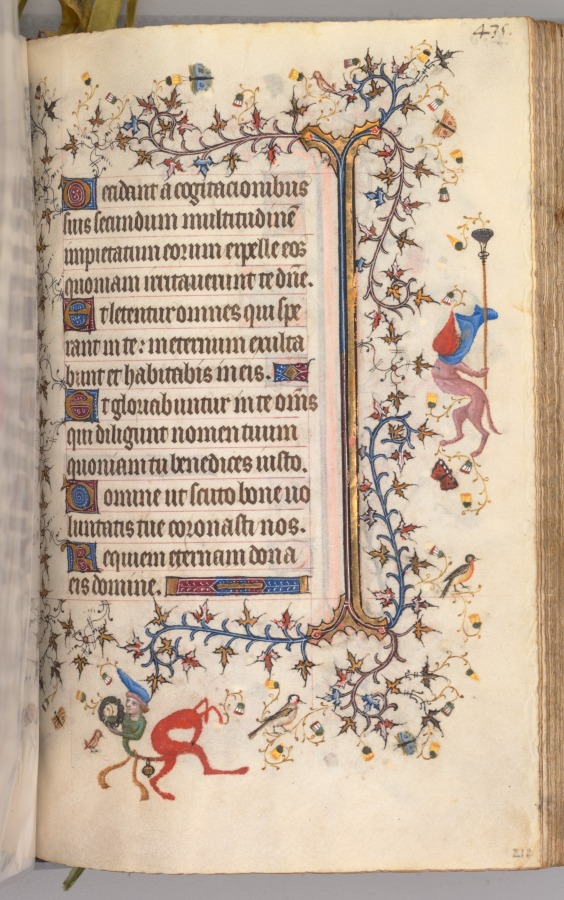 435.
Decidant a cogitacionibus
suis secundum multitudinē
impietatum eorum expelle eos
quoniam irritauerunt te dn̄e.
Et letentur omnes qui spe
rant in te: in eternum exulta
bunt et habitabis in eis.
Et gloriabuntur in te om̄s
qui diligunt nomen tuum
quoniam tu benedices iusto.
Domine ut scuto bone uo
luntatis tue coronasti nos.
Requiem eternam dona
eis domine.